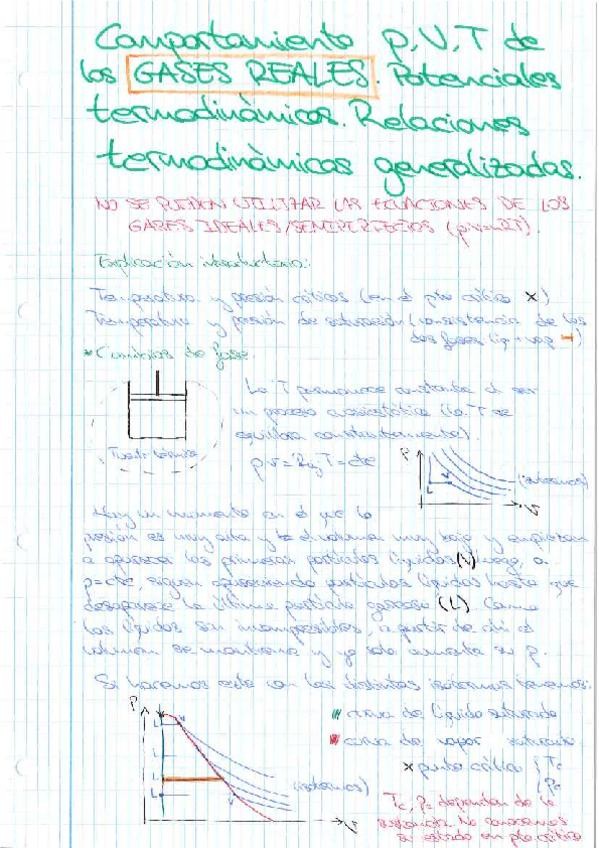 Comportamiento p.V.T de
los GASES REALES. Potenciales
termodinàmicos. Relaciones
termodinàmicas generalizadas.
NO SE PUEDEN UTILITZAR LAS ECUACIONES DE LOS
GASES IDEALES/SEMIPERFECTOS
Explicación introductoria:
Temperatura y presión críticos (en el pto crítico X)
Temperatura y presión de saturación (consistencia de las
dos fases liq + vap
* Cambios de fase.
La T permanece constante al ser
un proceso cuasiestático (la T se
equilibra constantemente).
T = cte
P
(isotermas)
v
L
Hay un momento en el que la
presión es muy alta y el volumen muy bajo y empiezan
a aparecer las primeras partículas líquidas (V) luego, a
p=cte, siguen apareciendo partículas líquidas hasta que
desaparece la última partícula gaseosa (L). Como
los líquidos son incompresibles, a partir de ahí el
volumen se mantiene y ya solo aumenta su p.
Si hacemos esto con las distintas isotermas tenemos:
P
curva de líquido saturado
curva de vapor saturado
X punto crítico { Tc
Pc
L
L
L
L
V
V
(isotermas)
v
Tc, Pc dependen de la
sustancia. No conocemos
su estado en pto crítico